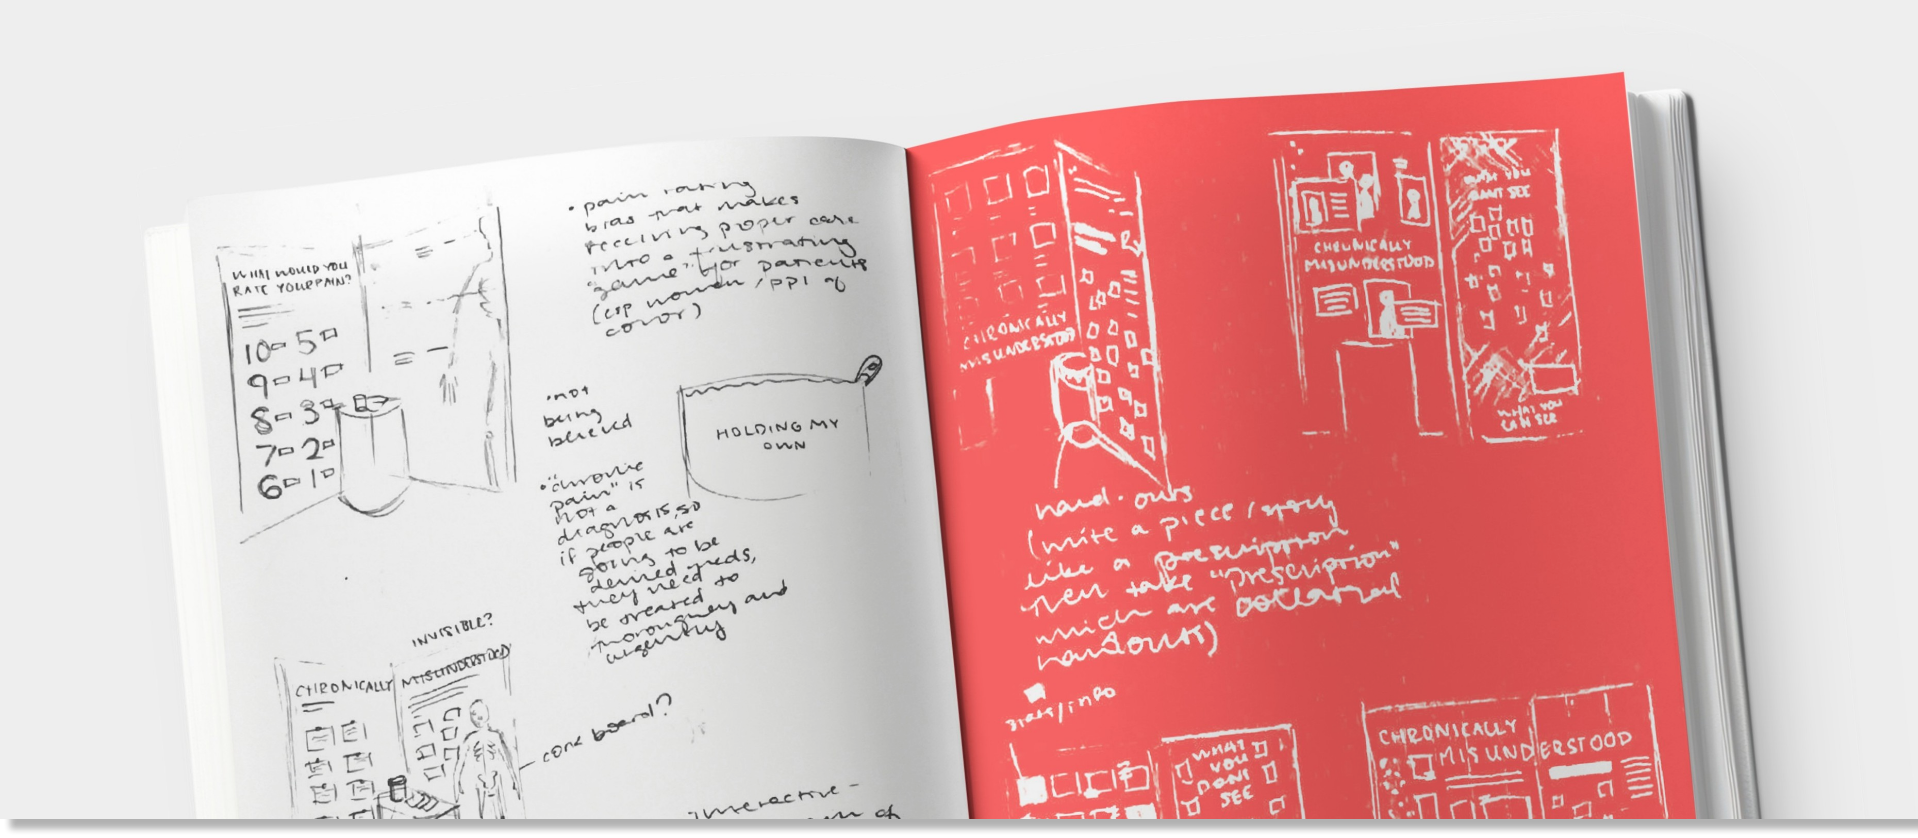 WHAT WOULD YOU
RATE YOUR PAIN?
10 5
9 4
8 3
7 2
6 1
• pain rating
bias that makes
receiving proper care
into a frustrating
"game" for patients
(esp women / ppl of
color)
• not
being
believed
HOLDING MY
OWN
• "chronic
pain" is
not a
diagnosis, so
if people are
going to be
denied meds,
they need to
be treated
thoroughly and
urgently
INVISIBLE?
CHRONICALLY MISUNDERSTOOD
cork board?
interactive -
of
CHRONICALLY
MISUNDERSTOOD
CHRONICALLY
MISUNDERSTOOD
WHAT YOU
CANT SEE
WHAT YOU
CAN SEE
hand-outs
(write a piece / story
like a prescription
then take "prescription"
which are
handouts)
stats/info
WHAT
YOU
DONT
SEE
CHRONICALLY
MISUNDERSTOOD